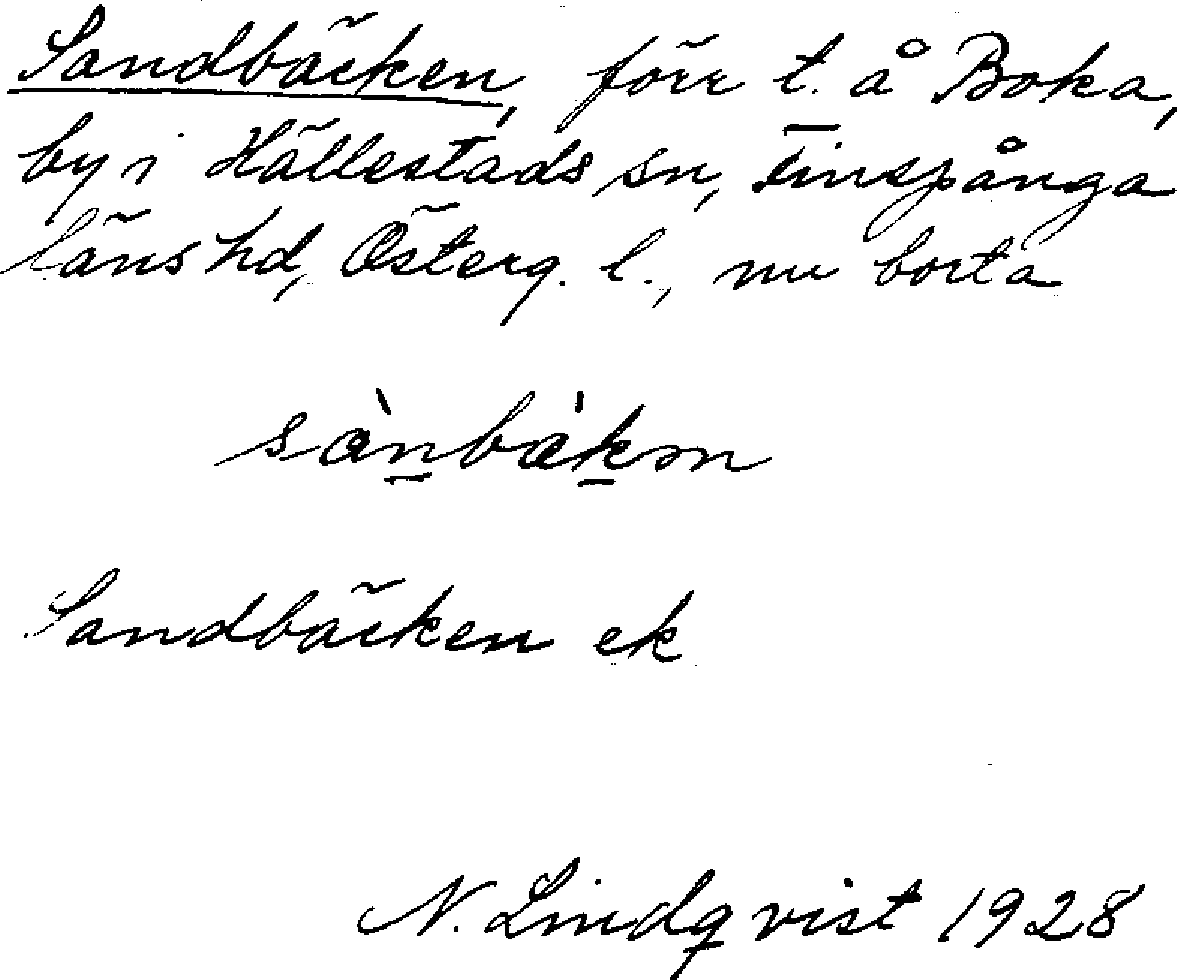 Sandbäcken, förr t. å Boka,
by i Hällestads sn, Finspånga
läns hd, Österg. l., nu borta
sànbàkən
Sandbäcken ek
N. Lindqvist 1928